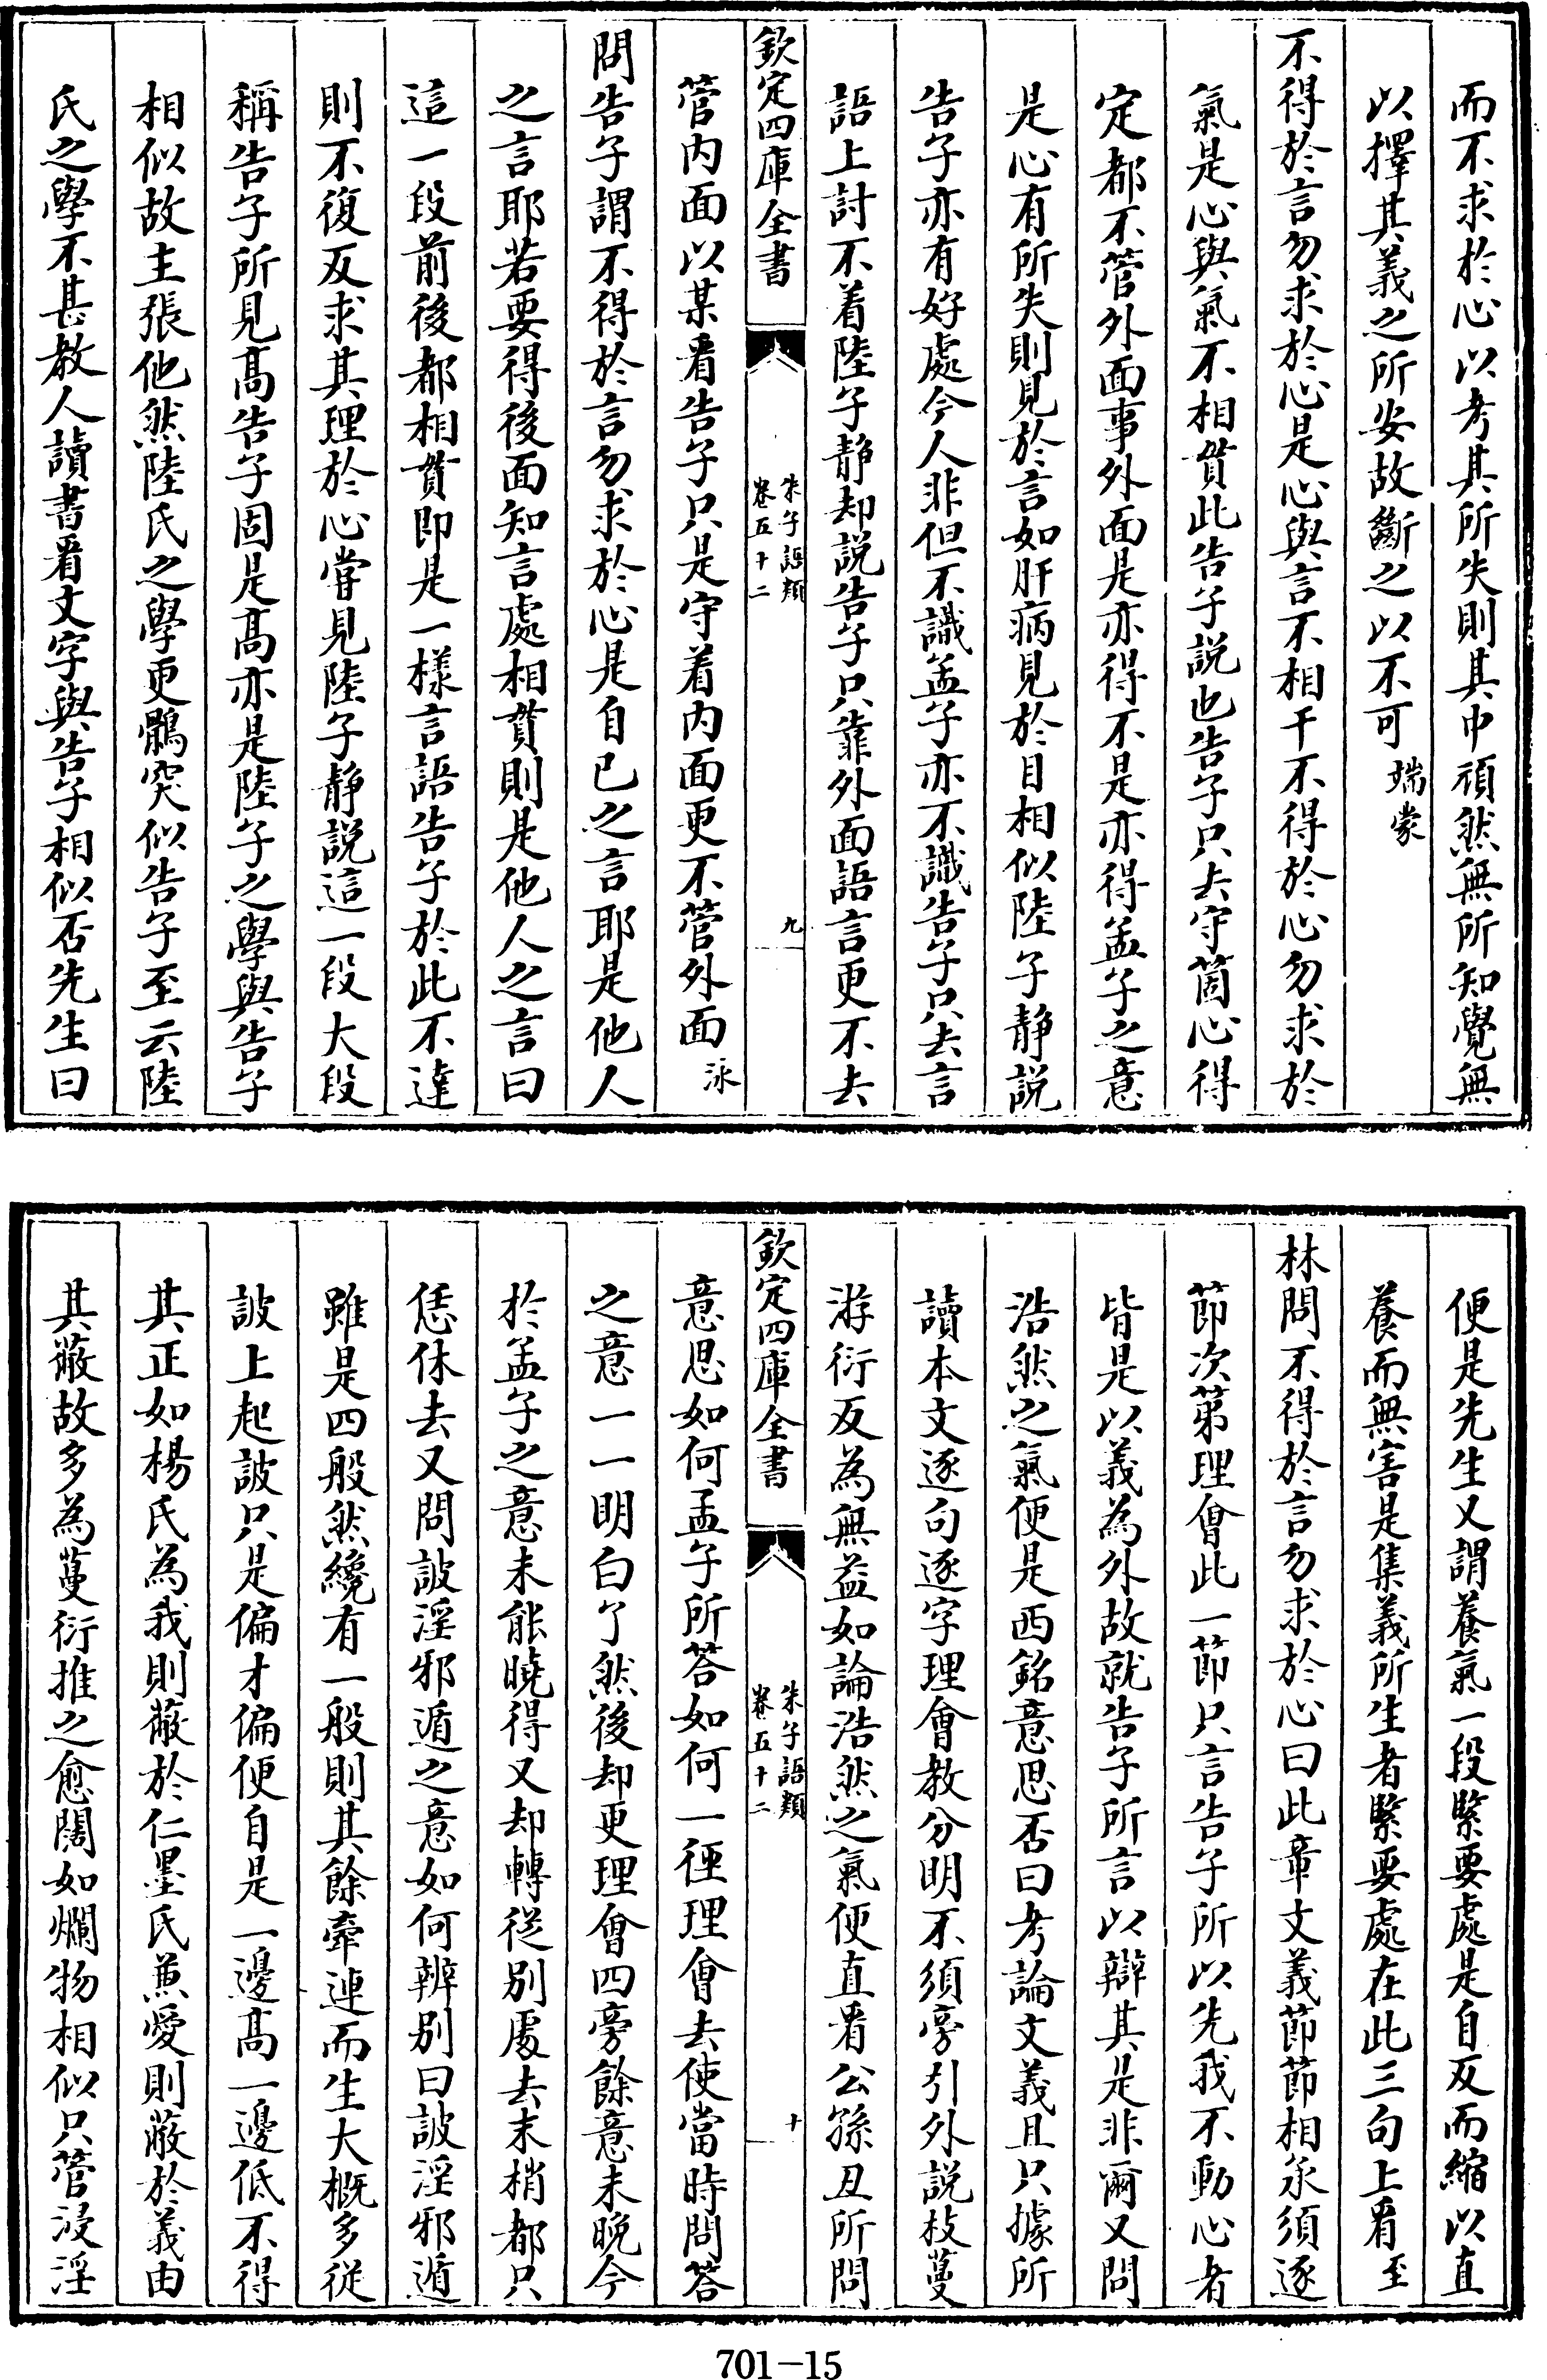 而不求於心以考其所失則其中頑然無所知覺無
以擇其義之所安故斷之以不可端蒙
不得於言勿求於心是心與言不相干不得於心勿求於
氣是心與氣不相貫此告子說也告子只去守箇心得
定都不管外面事外面是亦得不是亦得孟子之意
是心有所失則見於言如肝病見於目相似陸子静說
告子亦有好處今人非但不識孟子亦不識告子只去言
語上討不着陸子静却說告子只靠外面語言更不去
欽定四庫全書
朱子語類
卷五十二
九
管内面以某看告子只是守着内面更不管外面泳
問告子謂不得於言勿求於心是自已之言耶是他人
之言耶若要得後面知言處相貫則是他人之言曰
這一段前後都相貫即是一樣言語告子於此不達
則不復反求其理於心嘗見陸子静說這一段大段
稱告子所見高告子固是高亦是陸子之學與告子
相似故主張他然陸氏之學更鶻突似告子至云陸
氏之學不甚教人讀書看文字與告子相似否先生曰
便是先生又謂養氣一段緊要處是自反而縮以直
養而無害是集義所生者緊要處在此三句上看至
林問不得於言勿求於心曰此章文義節節相承須逐
節次第理會此一節只言告子所以先我不動心者
皆是以義為外故就告子所言以辯其是非爾又問
浩然之氣便是西銘意思否曰考論文義且只據所
讀本文逐句逐字理會教分明不須旁引外說枝蔓
游衍反為無益如論浩然之氣便直看公孫丑所問
欽定四庫全書
朱子語類
卷五十二
十
意思如何孟子所答如何一徑理會去使當時問答
之意一一明白了然後却更理會四旁餘意未晚今
於孟子之意未能曉得又却轉從别處去末梢都只
恁休去又問詖淫邪遁之意如何辨别曰詖淫邪遁
雖是四般然纔有一般則其餘牽連而生大概多從
詖上起詖只是偏才偏便自是一邊高一邊低不得
其正如楊氏為我則蔽於仁墨氏兼愛則蔽於義由
其蔽故多為蔓衍推之愈闊如爛物相似只管浸淫
701-15